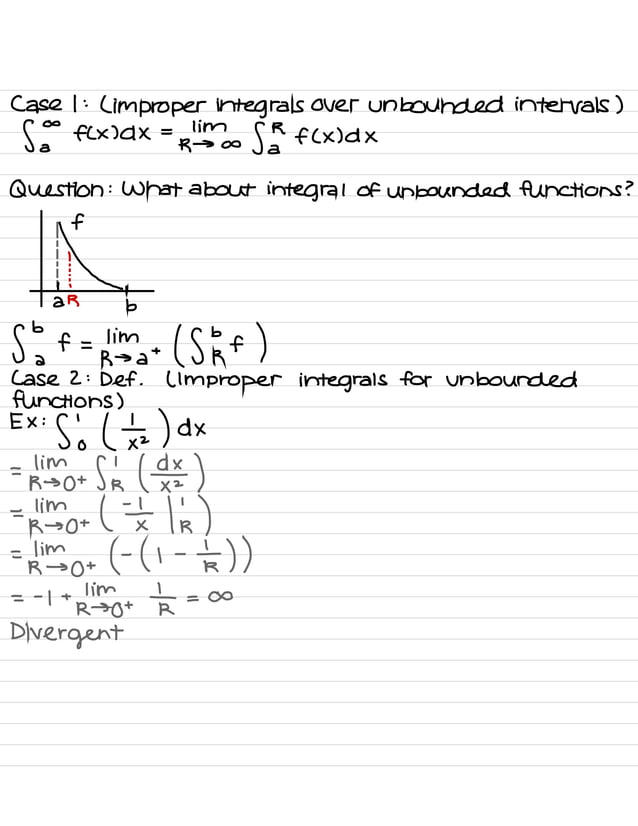 Case 1: (improper integrals over unbounded intervals)
∫_a^∞ f(x)dx = lim_{R→∞} ∫_a^R f(x)dx
Question: What about integral of unbounded functions?
f
a R b
∫_a^b f = lim_{R→a⁺} (∫_R^b f)
Case 2: Def. (Improper integrals for unbounded
functions)
Ex: ∫_0^1 (1/x²) dx
= lim_{R→0⁺} ∫_R^1 (dx/x²)
= lim_{R→0⁺} (-1/x |_R^1)
= lim_{R→0⁺} (-(1 - 1/R))
= -1 + lim_{R→0⁺} 1/R = ∞
Divergent